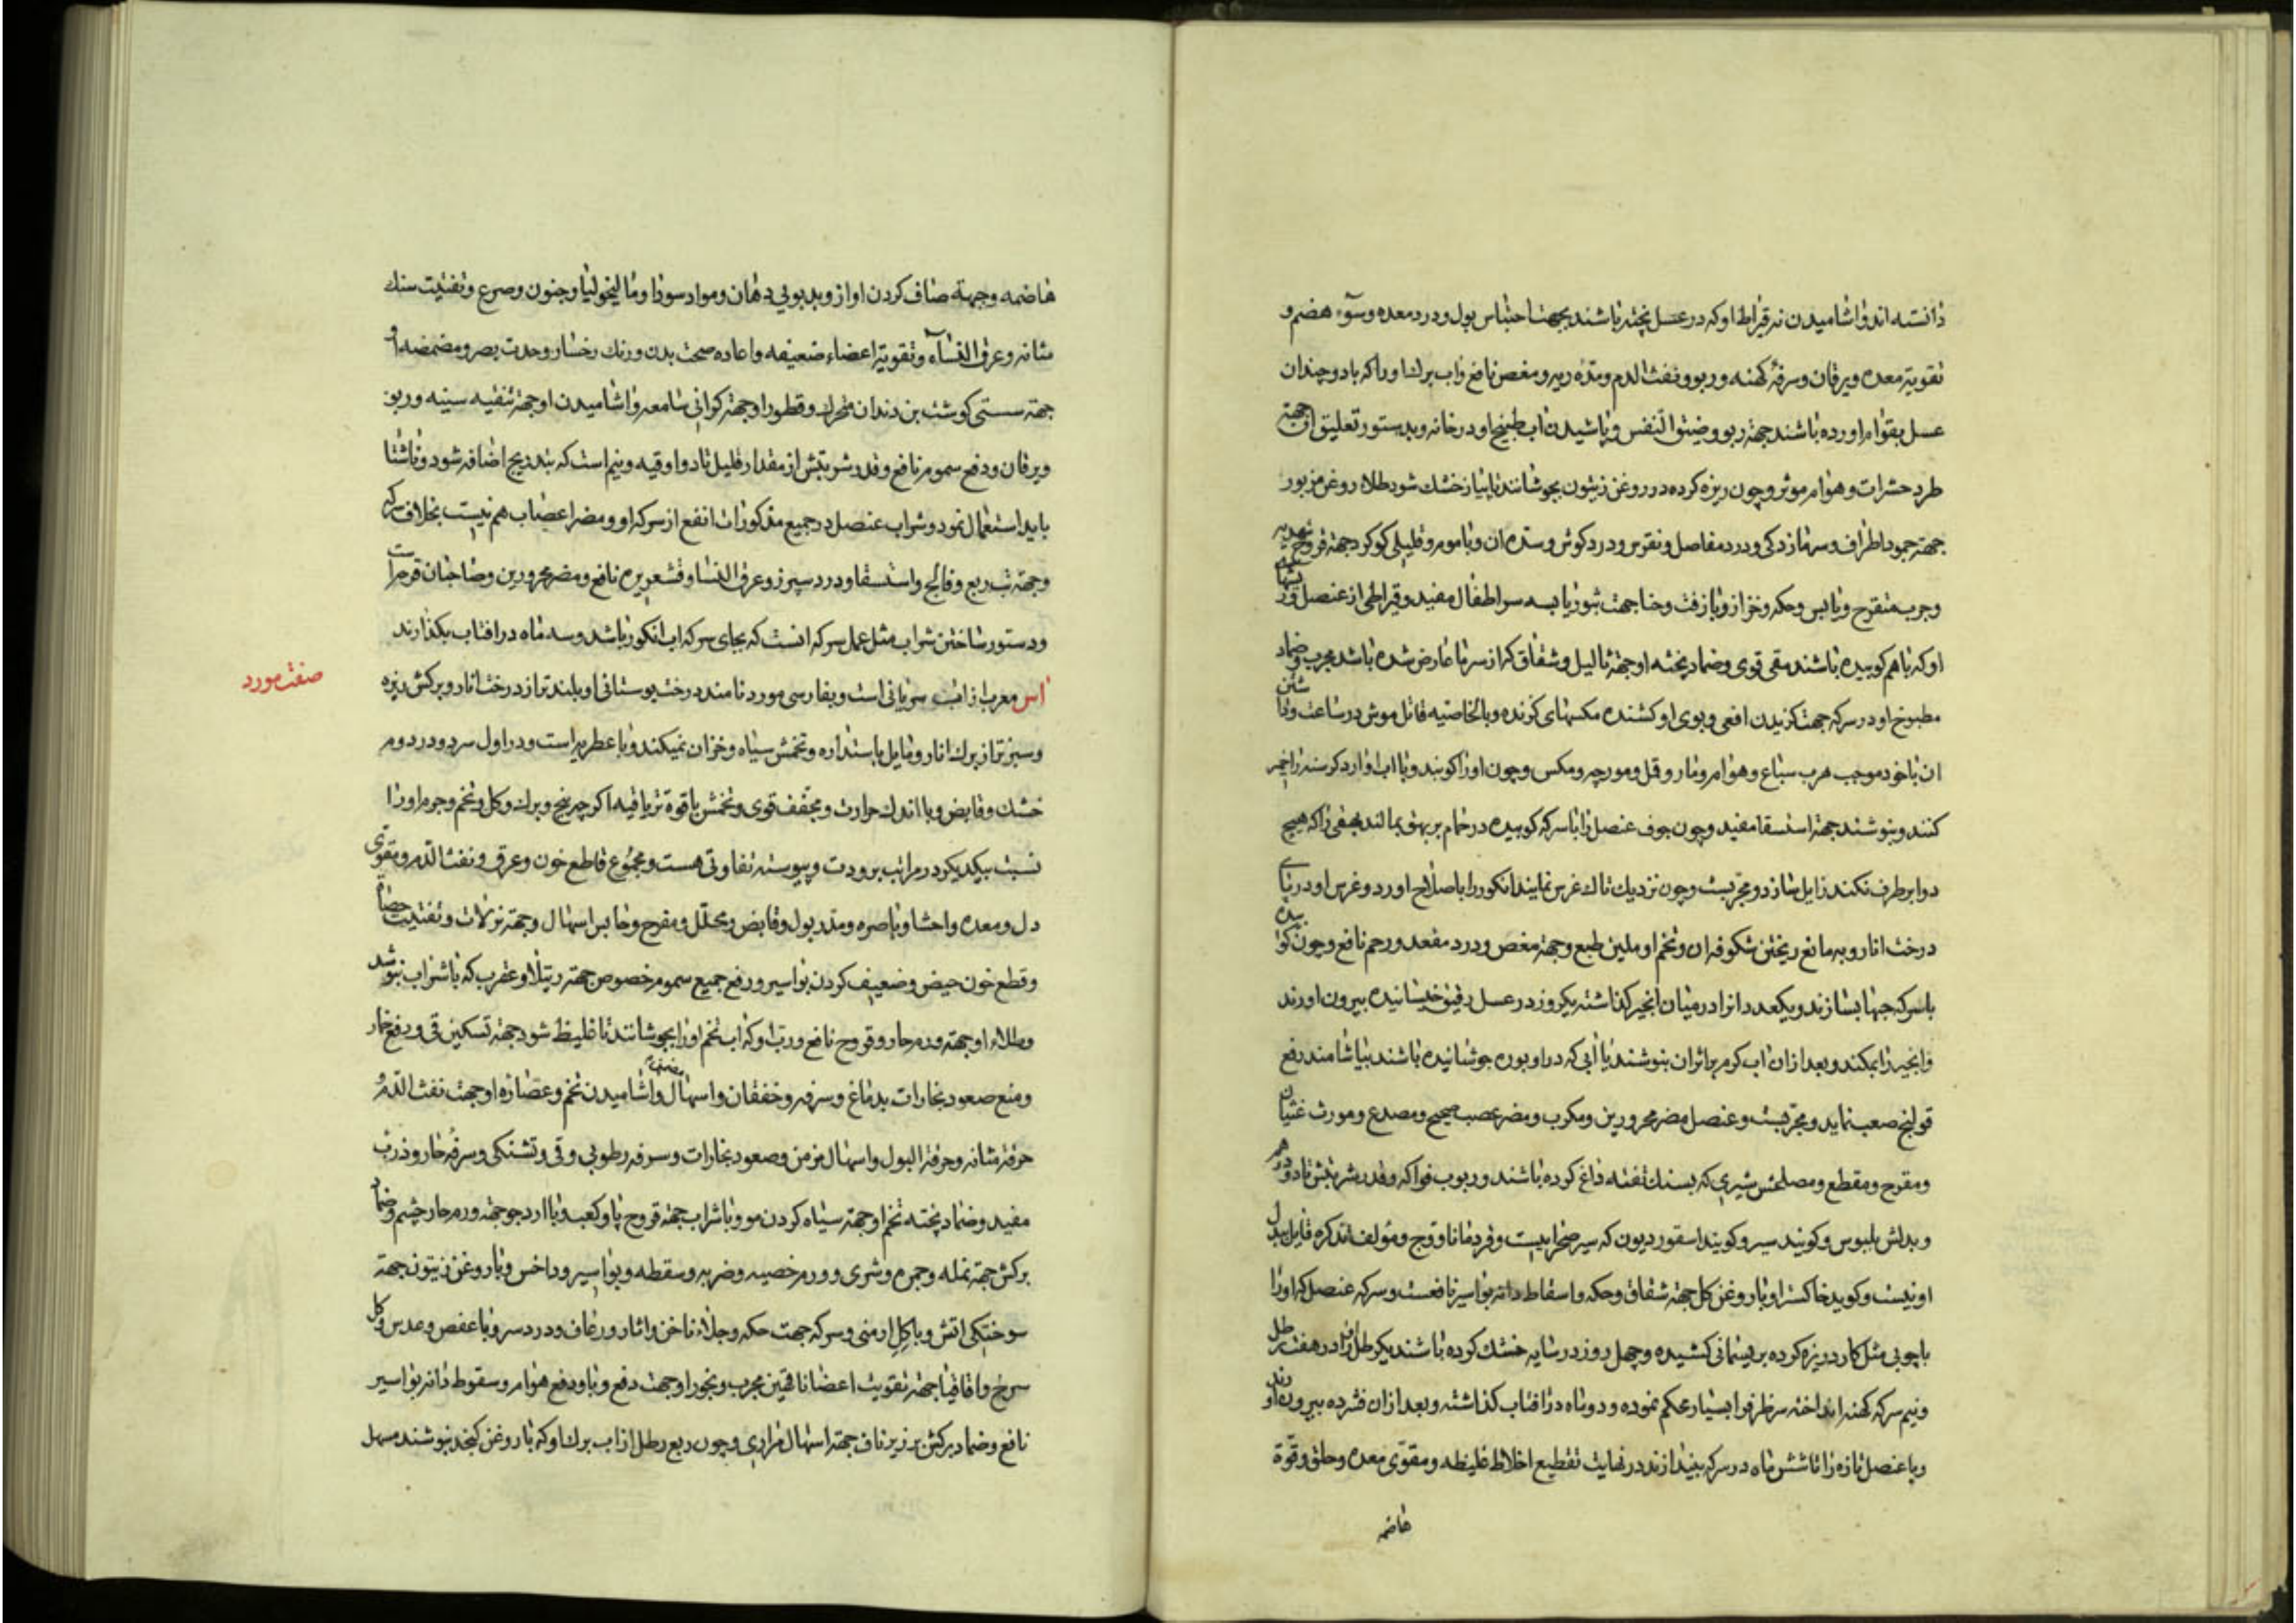 دانسته اند و اشامیدن نه قیراط او که در عسل پخته باشند بجهت احتباس بول و درد معده و سوء هضم و
تقویة معده و یرقان و سرفهٔ کهنه و ربو و نفث الدم و مدّهٔ ریه و مغص نافع و اب برك او را که با دو چندان
عسل بقوام اورده باشند جهتة ربو و ضیق النفس و پاشیدن اب طبیخ او در خانه و بدستور تعلیق ان جهتة
طرد حشرات و هوام موثر و چون ریزه کرده در روغن زیتون بجوشانند تا پیاز خشك شود طلاء روغن مزبور
جهتة جمود اطراف و سرمازدکی و درد مفاصل و نقرس و درد کوش و سدهٔ ان و با موم و قلیلی کوکرد جهتة قروح شهدیه
و جرب متقرح و یابس و حکه و خزاز و با زفت و حنا جهت بثور یابسه سر اطفال مفید و قیراطی از عنصل و تخم
او که با هم کوبیده باشند مقی قوی و ضماد پخته او جهتة ثالیل و شقاق که از سرما عارض شده باشد مجرب و ضماد
مطبوخ او در سرکه جهت کزیدن افعی و بوی او کشنده مکسهای کزنده و بالخاصیه قاتل موش در ساعت و داشتن
ان با خود موجب هرب سباع و هوام و مار و قمل و مورچه و مکس و چون او را کوبند و با اب و ارد کرسنه را خمیر
کنند و بنوشند جهتة استسقا مفید و چون جوف عنصل را با سرکه کوبیده در حمام بر بهق بمالند بهقی را که هیچ
دوا برطرف نکند زایل سازد و مجربست و چون نزدیك تاك غرس نمایند انکور را باصلاح اورد و غرس او در پای
درخت انار و به مانع ریختن شکوفهٔ ان و تخم او ملین طبع و جهتة مغص و درد مقعد و رحم نافع و چون کوبیده
با سرکه حبها بسازند و یکعدد انرا در میان انجیر کذاشته یکروز در عسل رقیق خیسانیده بیرون اورند
و انجیر را بمکند و بعد از ان اب کرم بر اثر ان بنوشند یا ابی که در او بوره جوشانیده باشند بیاشامند رفع
قولنج صعب نماید و مجربست و عنصل مضر محرورین و مکرب و مضر عصب صحیح و مصدع و مورث غثیان
و مقرح و مقطع و مصلحش شیری که بسنك تفته داغ کرده باشند و ربوب فواکه و قدر شربتش تا دو درهم
و بدلش بلبوس و کویند سیر و کویند اسقوردیون که سیر صحرائیست و قردمانا و وج و مؤلف تذکره قایل ببدل
او نیست و کوید خاکستر او با روغن کل جهتة شقاق و حکه و اسقاط دانه بواسیر نافعست و سرکه عنصل که او را
با چوبی مثل کارد ریزه کرده بر ریسمانی کشیده و چهل روز در سایه خشك کرده باشند یکرطل او را در هفت رطل
و نیم سرکه کهنه انداخته سر ظرف را بسیار محکم نموده و دو ماه در افتاب کذاشته و بعد از ان فشرده بیرون اورند
و با عنصل تازه را تا شش ماه در سرکه بیندازند در نهایت تقطیع اخلاط غلیظه و مقوّی معده و حلق و قوّة
هاضمه
هاضمه و جهتة صاف کردن اواز و بدبوئی دهان و مواد سودا و مالیخولیا و جنون و صرع و تفتیت سنك
مثانه و عرق النساء و تقویة اعضاء ضعیفه و اعاده صحت بدن و رنك رخسار و حدت بصر و مضمضه او
جهتة سستی کوشت بن دندان متحرك و قطور او جهتة کرانی سامعه و اشامیدن او جهتة تنقیه سینه و ربو
و یرقان و دفع سموم نافع و قدر شربتش از مقدار قلیل تا دو اوقیه و نیم است که بتدریج اضافه شود و ناشتا
باید استعمال نمود و شراب عنصل در جمیع مذکورات انفع از سرکه او و مضر اعصاب هم نیست بخلاف سرکه
و جهتة تب ربع و فالج و استسقا و درد سپرز و عرق النسا و قشعریره نافع و مضر محرورین و صاحبان قرحه است
و دستور ساختن شراب مثل عمل سرکه انست که بجای سرکه اب انکور باشد و سه ماه در افتاب بکذارند
صفت مورد
اس معرب از اسا سریانی است و بفارسی مورد نامند درخت بوستانی او بلندتر از درخت انار و برکش ریزه
و سبزتر از برك انار و مایل باستداره و تخمش سیاه و خزان نمیکند و با عطریه است و در اول سرد و در دوم
خشك و قابض و با اندك حرارت و مجفف قوی و تخمش با قوة تریاقیه اکرچه بیخ و برك و کل و تخم و جرم او را
نسبت بیکدیکر در مراتب برودت و یبوست تفاوتی هست و مجموع قاطع خون و عرق و نفث الدم و مقوّی
دل و معده و احشا و باصره و مدر بول و قابض و محلل و مفرح و حابس اسهال و جهتة نزلات و تفتیت حصاة
و قطع خون حیض و ضعیف کردن بواسیر و رفع جمیع سموم خصوص جهتة رتیلا و عقرب که با شراب بنوشند
و طلاء او جهتة ورم حار و قروح نافع و رب او که اب تخم او را بجوشانند تا غلیظ شود جهتة تسکین قی و رفع خمار
و منع صعود بخارات بدماغ و سرفه و خفقان و اسهال و اشامیدن تخم و عصاره او جهت نفث الدم و
حرقة مثانه و حرقة البول و اسهال مزمن و صعود بخارات و سرفه رطوبی و قی و تشنکی و سرفهٔ حار و ذرب
مفید و ضماد پخته تخم او جهتة سیاه کردن مو و با شراب جهتة قروح پا و کعب و با ارد جو جهتة ورم حار چشم و ضماد
برکش جهتة نمله و جمره و شری و ورم خصیه و ضربه و سقطه و بواسیر و داخس و با روغن زیتون جهتة
سوختکی اتش و با کل ارمنی و سرکه جهت حکه و جلاء ناخن و اثار و رعاف و درد سر و با عفص و عدس و کل
سرخ و اقاقیا جهتة تقویت اعضا ناقهین مجرب و بخور او جهت دفع وبا و دفع هوام و سقوط دانه بواسیر
نافع و ضماد برکش بر زیر ناف جهتة اسهال مراری و چون ربع رطل از اب برك او که با روغن کنجد بنوشند مسهل